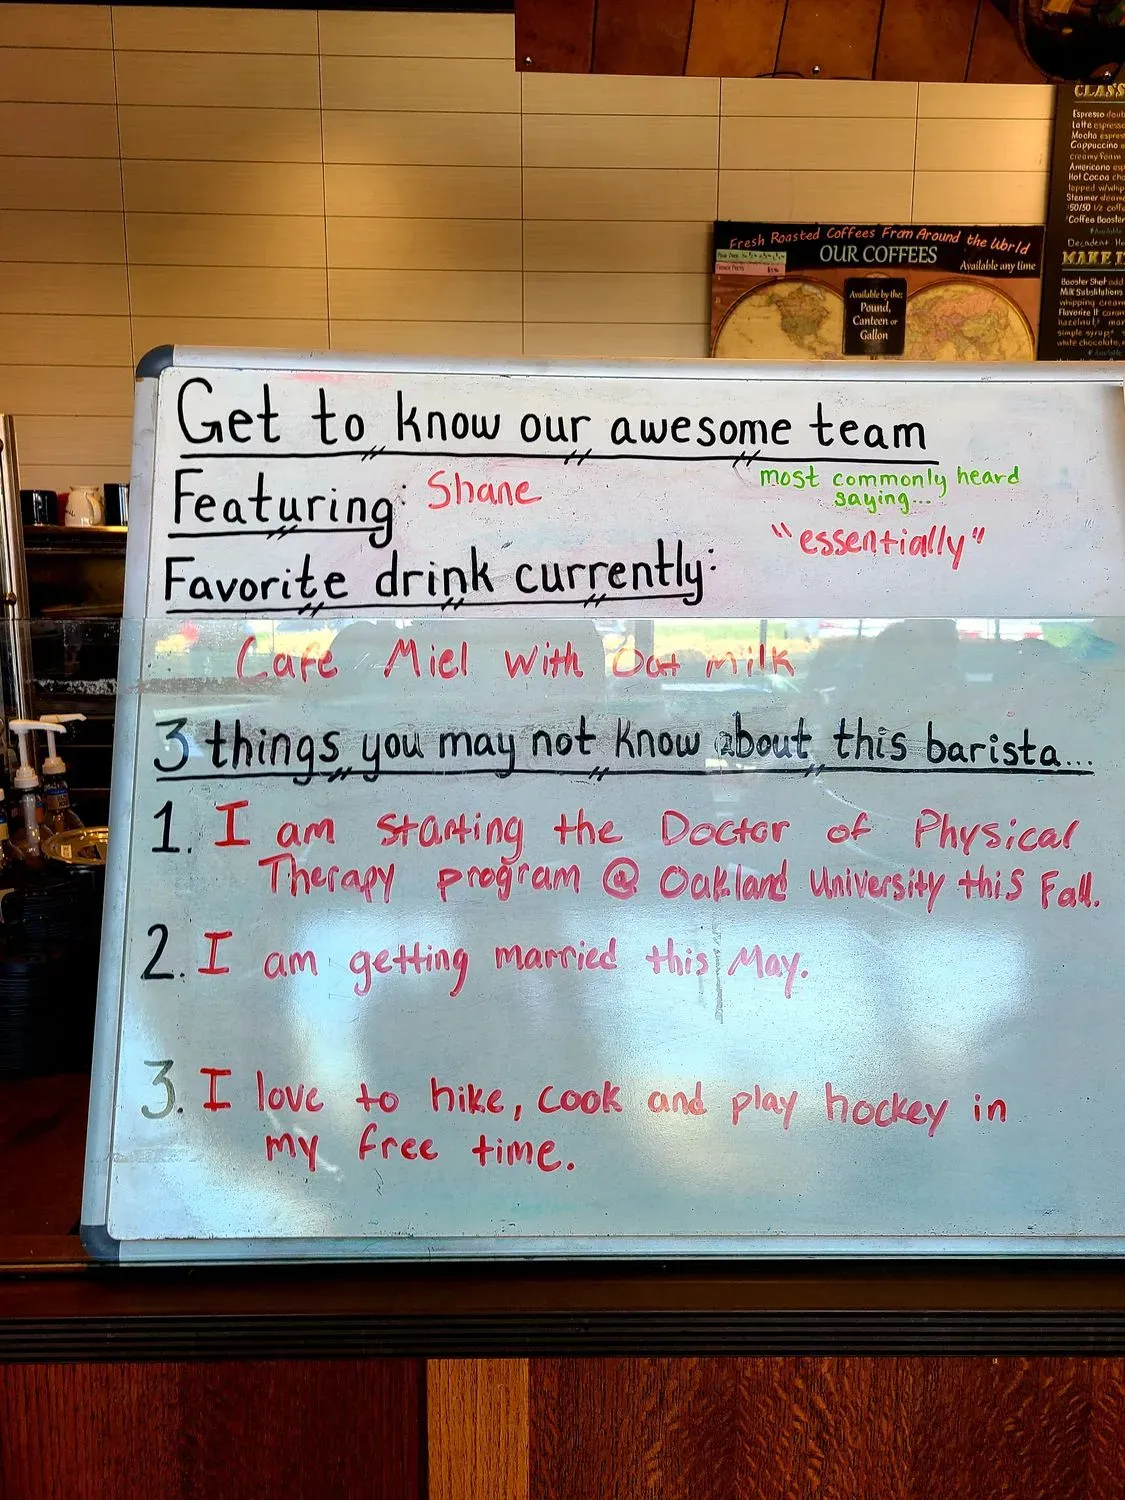 Get to know our awesome team
Featuring: Shane
most commonly heard
saying...
"essentially"
Favorite drink currently:
Cafe Miel With Oat Milk
3 things you may not know about this barista...
1. I am starting the Doctor of Physical
Therapy program @ Oakland University this Fall.
2. I am getting married this May.
3. I love to hike, cook and play hockey in
my free time.
Fresh Roasted Coffees From Around the World
OUR COFFEES
Available any time
Available by the:
Pound,
Canteen or
Gallon
CLASS
Espresso doub
Latte espresso
Mocha espres
Cappuccino e
creamy foam
Americano esp
Hot Cocoa cho
topped w/whip
Steamer steame
50/50 1/2 coffe
Coffee Booster
Decadent Ho
MAKE IT
Booster Shot add
Milk Substitutions
whipping cream
Flavorize It caram
hazelnut, man
simple syrup,
white chocolate,